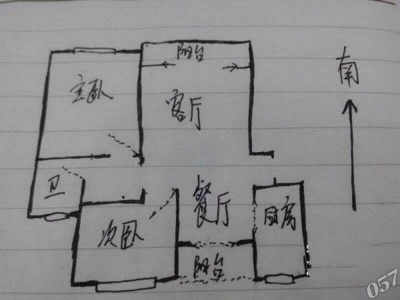 阳台
主卧
客厅
南
卫
餐厅
厨房
次卧
阳台
057